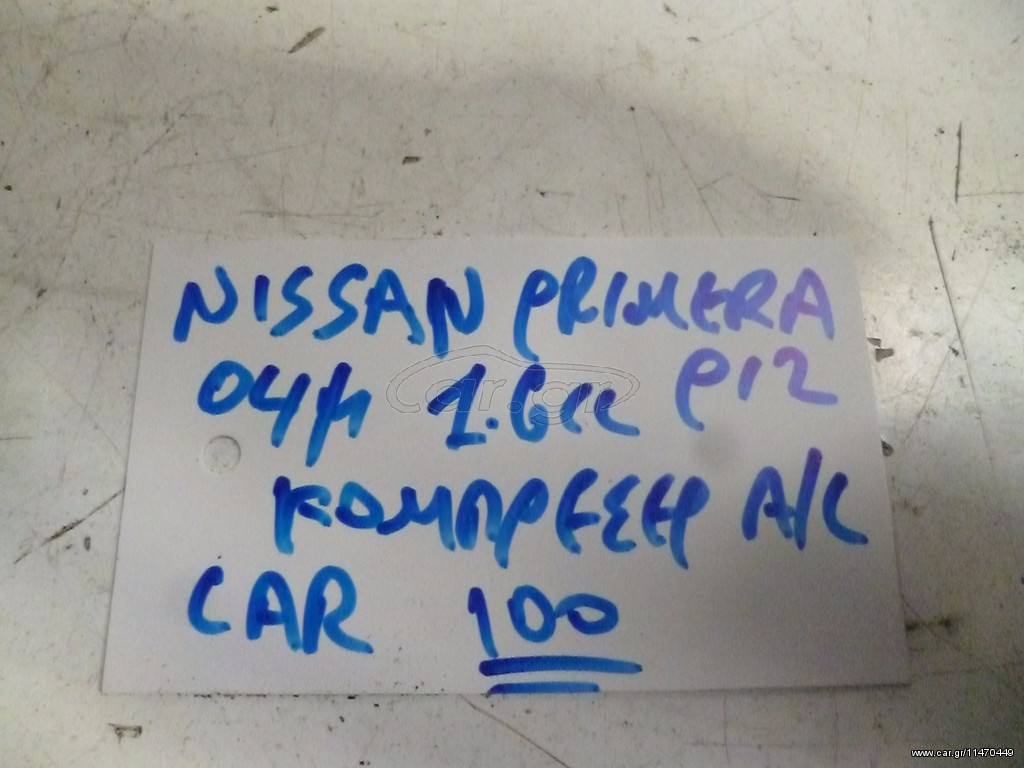 NISSAN PRIMERA
04μ 1.6cc P12
ΚΟΜΠΡΕΣΕΡ A/C
CAR 100
car.gr
www.car.gr/11470449